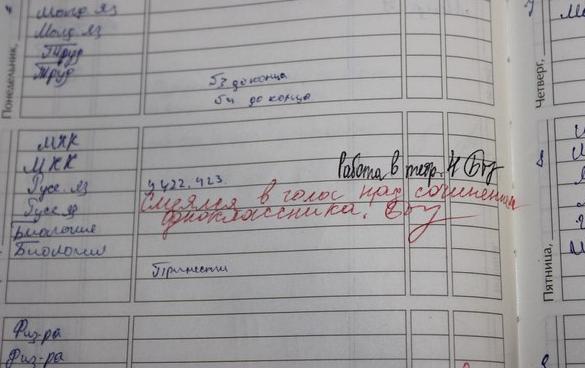 Молд. яз
Молд. яз
Труд
Труд
до конца
до конца
Понедельник,
Четверг,
МХК
МХК
Русс. яз
422. 423.
Работа в тетр. 4
Русс. яз
Смеялся в голос над сочинением
одноклассника.
Биология
Биология
Принести
Пятница,
Физ-ра
Физ-ра